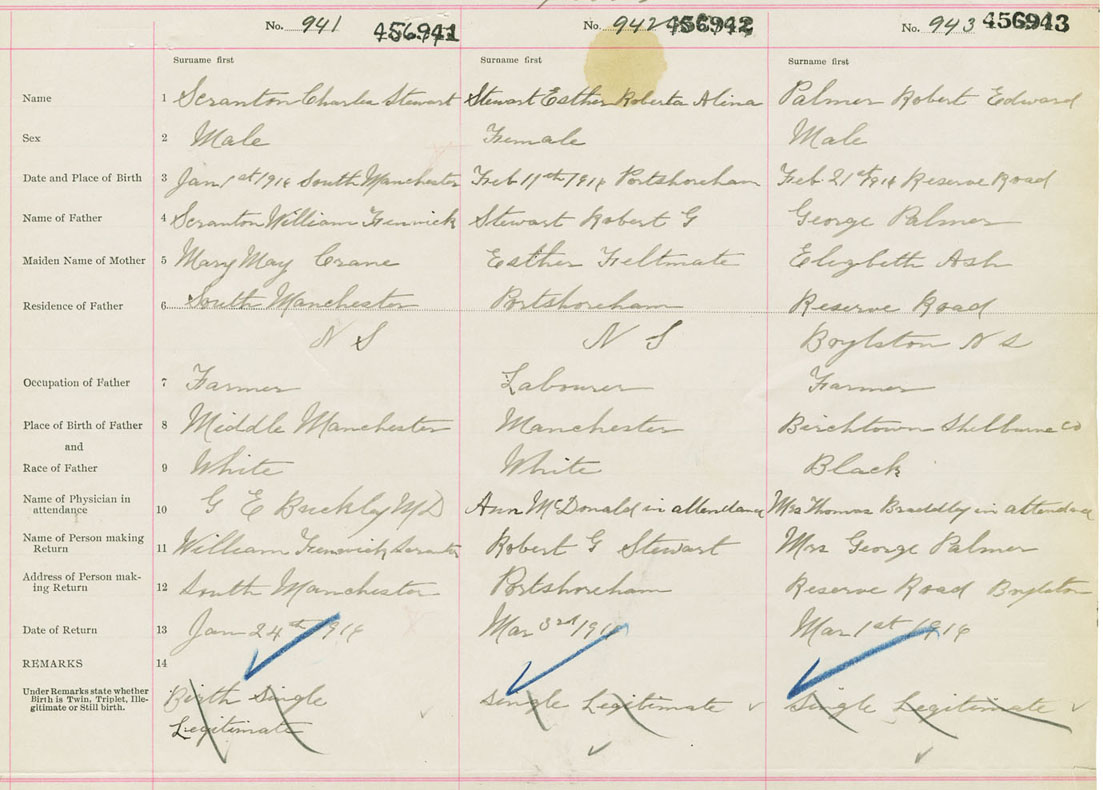 No. 941 456941 No. 942 456942 No. 943 456943
Surname first Surname first Surname first
Name 1 Scranton Charles Stewart Stewart Esther Roberta Alina Palmer Robert Edward
Sex 2 Male Female Male
Date and Place of Birth 3 Jan 1st 1916 South Manchester Feb 11th 1916 Portshoreham Feb 21st 1916 Reserve Road
Name of Father 4 Scranton William Fenwick Stewart Robert G George Palmer
Maiden Name of Mother 5 Mary May Crane Esther Feltmate Elizbeth Ash
Residence of Father 6 South Manchester Portshoreham Reserve Road
N S N S Boylston N S
Occupation of Father 7 Farmer Labourer Farmer
Place of Birth of Father 8 Middle Manchester Manchester Birchtown Shelburne Co
and
Race of Father 9 White White Black
Name of Physician in
attendance 10 G E Buckley MD Ann McDonald in attendance Mrs Thomas in attendance
Name of Person making
Return 11 William Fenwick Scranton Robert G Stewart Mrs George Palmer
Address of Person mak-
ing Return 12 South Manchester Portshoreham Reserve Road Boylston
Date of Return 13 Jan 24th 1916 Mar 3rd 1916 Mar 1st 1916
REMARKS 14
Under Remarks state whether
Birth is Twin, Triplet, Ille-
gitimate or Still birth.
Birth Single Single Legitimate Single Legitimate
Legitimate